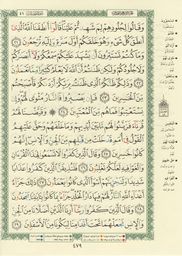 وَقَالُوا لِجُلُودِهِمْ لِمَ شَهِدتُّمْ عَلَيْنَا قَالُوا أَنطَقَنَا اللَّهُ الَّذِي
أَنطَقَ كُلَّ شَيْءٍ وَهُوَ خَلَقَكُمْ أَوَّلَ مَرَّةٍ وَإِلَيْهِ تُرْجَعُونَ ٢١
وَمَا كُنتُمْ تَسْتَتِرُونَ أَن يَشْهَدَ عَلَيْكُمْ سَمْعُكُمْ وَلَا أَبْصَارُكُمْ
وَلَا جُلُودُكُمْ وَلَٰكِن ظَنَنتُمْ أَنَّ اللَّهَ لَا يَعْلَمُ كَثِيرًا مِّمَّا تَعْمَلُونَ
٢٢ وَذَٰلِكُمْ ظَنُّكُمُ الَّذِي ظَنَنتُم بِرَبِّكُمْ أَرْدَاكُمْ فَأَصْبَحْتُم
مِّنَ الْخَاسِرِينَ ٢٣ فَإِن يَصْبِرُوا فَالنَّارُ مَثْوًى لَّهُمْ
وَإِن يَسْتَعْتِبُوا فَمَا هُم مِّنَ الْمُعْتَبِينَ ٢٤ وَقَيَّضْنَا لَهُمْ
قُرَنَاءَ فَزَيَّنُوا لَهُم مَّا بَيْنَ أَيْدِيهِمْ وَمَا خَلْفَهُمْ وَحَقَّ عَلَيْهِمُ
الْقَوْلُ فِي أُمَمٍ قَدْ خَلَتْ مِن قَبْلِهِم مِّنَ الْجِنِّ وَالْإِنسِ إِنَّهُمْ
كَانُوا خَاسِرِينَ ٢٥ وَقَالَ الَّذِينَ كَفَرُوا لَا تَسْمَعُوا لِهَٰذَا
الْقُرْآنِ وَالْغَوْا فِيهِ لَعَلَّكُمْ تَغْلِبُونَ ٢٦ فَلَنُذِيقَنَّ الَّذِينَ كَفَرُوا
عَذَابًا شَدِيدًا وَلَنَجْزِيَنَّهُمْ أَسْوَأَ الَّذِي كَانُوا يَعْمَلُونَ ٢٧
ذَٰلِكَ جَزَاءُ أَعْدَاءِ اللَّهِ النَّارُ لَهُمْ فِيهَا دَارُ الْخُلْدِ جَزَاءً بِمَا كَانُوا بِآيَاتِنَا يَجْحَدُونَ
٢٨ وَقَالَ الَّذِينَ كَفَرُوا رَبَّنَا أَرِنَا اللَّذَيْنِ أَضَلَّانَا مِنَ الْجِنِّ
وَالْإِنسِ نَجْعَلْهُمَا تَحْتَ أَقْدَامِنَا لِيَكُونَا مِنَ الْأَسْفَلِينَ ٢٩
٤٧٩